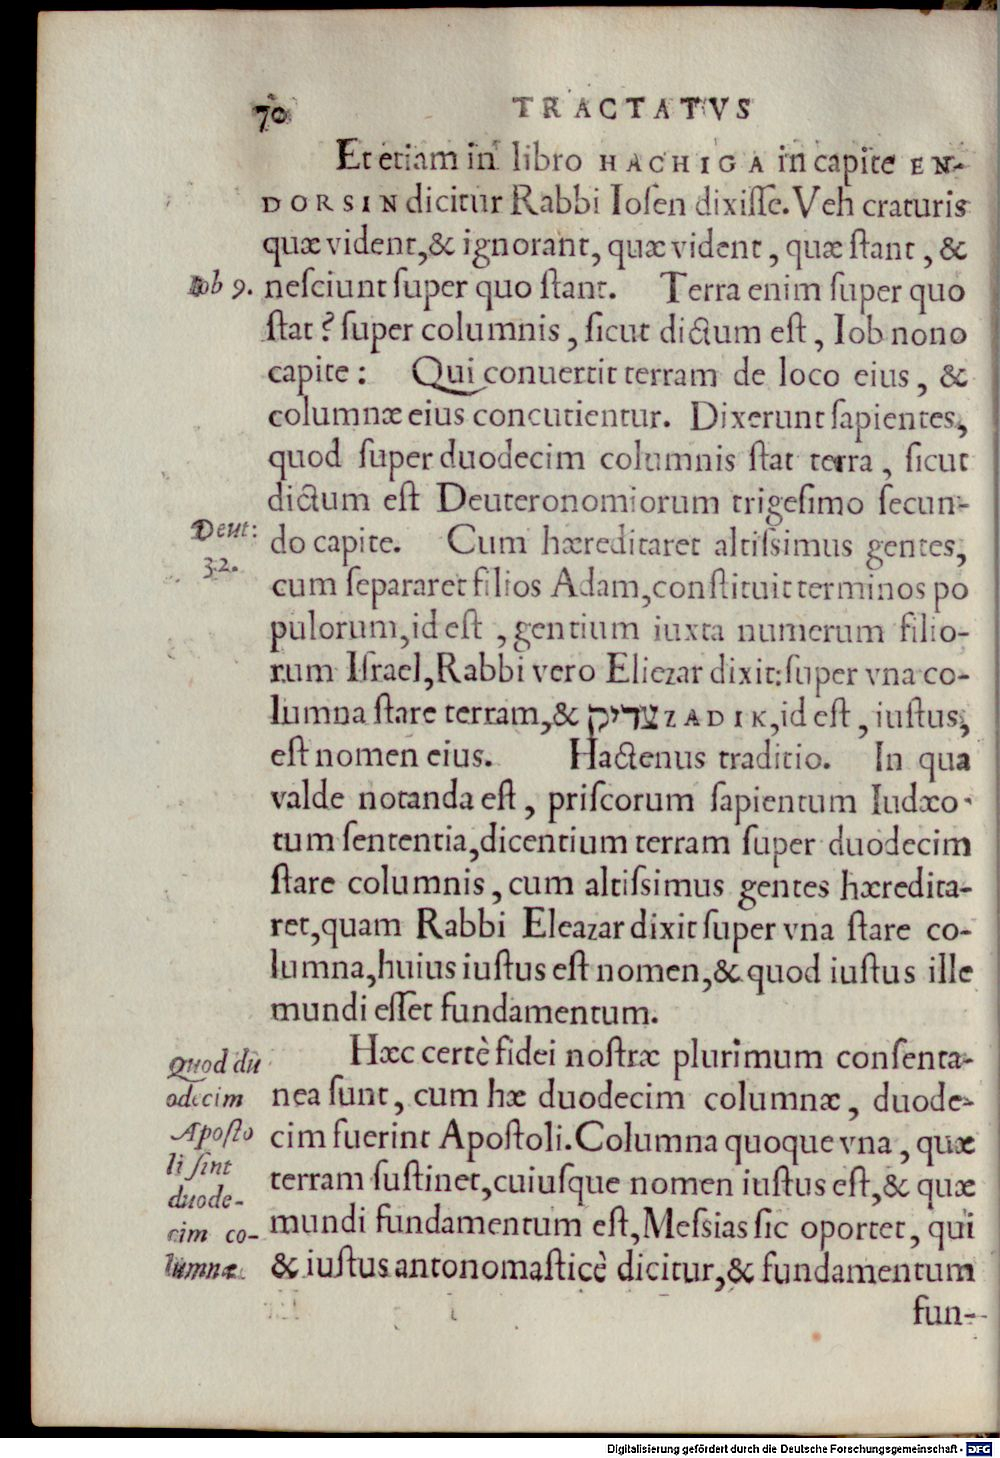 70 TRACTATVS
Et etiam in libro HACHIGA in capite EN-
DORSIN dicitur Rabbi Iosen dixisse. Veh craturis
quæ vident,& ignorant, quæ vident, quæ stant, &
Iob 9. nesciunt super quo stant. Terra enim super quo
stat? super columnis, sicut dictum est, Iob nono
capite: Qui conuertit terram de loco eius, &
columnæ eius concutientur. Dixerunt sapientes,
quod super duodecim columnis stat terra, sicut
dictum est Deuteronomiorum trigesimo secun-
Deut: 32. do capite. Cum hæreditaret altissimus gentes,
cum separaret filios Adam,constituit terminos po
pulorum,id est, gentium iuxta numerum filio-
rum Israel,Rabbi vero Eliezar dixit:super vna co-
lumna stare terram,& צדיק ZADIK,id est, iustus,
est nomen eius. Hactenus traditio. In qua
valde notanda est, priscorum sapientum Iudæo-
tum sententia,dicentium terram super duodecim
stare columnis, cum altissimus gentes hæredita-
ret,quam Rabbi Eleazar dixit super vna stare co-
lumna,huius iustus est nomen,& quod iustus ille
mundi esset fundamentum.
Quod du
odecim
Aposto
li sint
duode-
cim co-
lumnæ.
Hæc certè fidei nostræ plurimum consenta-
nea sunt, cum hæ duodecim columnæ, duode-
cim fuerint Apostoli. Columna quoque vna, quæ
terram sustinet,cuiusque nomen iustus est,& quæ
mundi fundamentum est,Messias sic oportet, qui
& iustus antonomasticè dicitur,& fundamentum
fun-
Digitalisierung gefördert durch die Deutsche Forschungsgemeinschaft - DFG